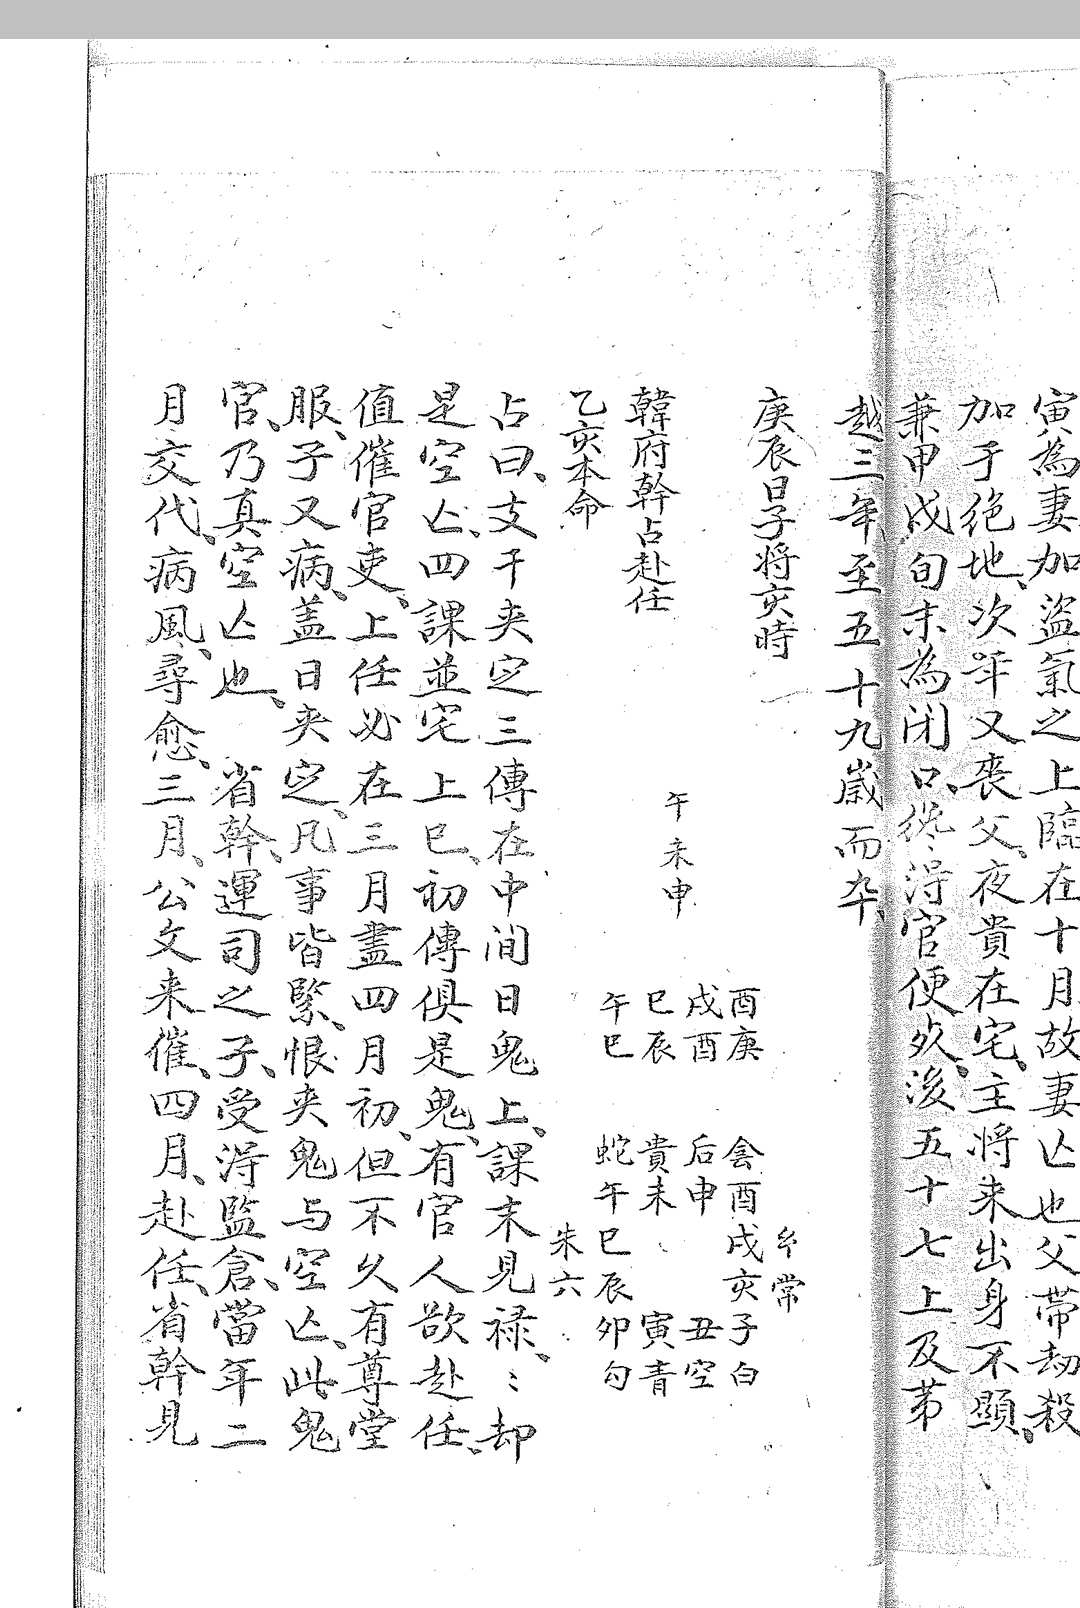 寅為妻加盜氣之上臨在十月故妻亾也父帶刼殺
加于绝地、次年又丧父、夜貴在宅、主將来出身不顕、
兼甲戌旬末為闭口、終淂官便歿、後五十七上及苐
越三年至五十九歲而卒、
庚辰日子将亥時
常
酉庚 酉戌亥子白
戌酉 后申 丑空
午未申 巳辰 貴未 寅青
韓府幹占赴任
午巳 蛇午巳辰卯勾
朱六
乙亥本命
占曰、支干夾定三傳在中间日鬼上、課末見禄、〻却
是空亾、四課並宅上巳、初傳俱是鬼、有官人欲赴任、
值催官吏、上任必在三月盡四月初、但不久有尊堂
服、子又病、盖日夾定、凡事皆緊、恨夾鬼与空亾、此鬼
官、乃真空亾也、 省幹、運司之子、受淂監倉、當年二
月交代、病風、尋愈、三月、公文来催、四月、赴任、省幹見